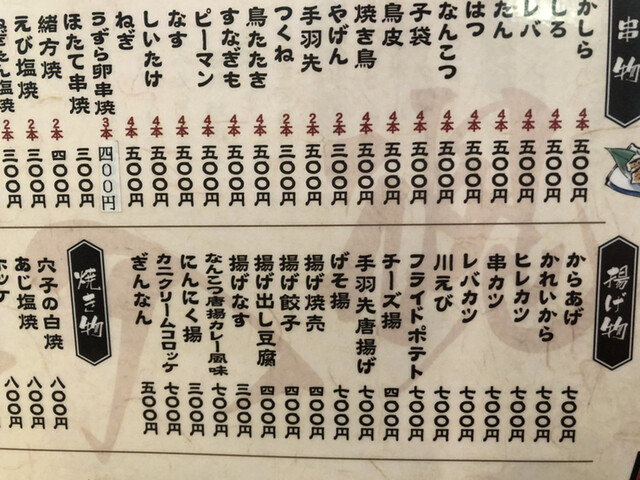 串物
かしら 4本 五〇〇円
しろ 4本 五〇〇円
レバ 4本 五〇〇円
たん 4本 五〇〇円
はつ 4本 五〇〇円
なんこつ 4本 五〇〇円
子袋 4本 五〇〇円
鳥皮 4本 五〇〇円
焼き鳥 4本 五〇〇円
やげん 2本 三〇〇円
手羽先 2本 五〇〇円
つくね 2本 三〇〇円
鳥たたき 4本 五〇〇円
すなぎも 4本 五〇〇円
ピーマン 4本 五〇〇円
なす 4本 五〇〇円
しいたけ 4本 五〇〇円
ねぎ 4本 五〇〇円
うずら卵串焼 3本 四00円
ほたて串焼 三〇〇円
緒方焼 2本 四〇〇円
えび塩焼 2本 三〇〇円
ねぎたん塩焼 2本 三〇〇円
揚げ物
からあげ 七〇〇円
かれいから 七〇〇円
ヒレカツ 七〇〇円
串カツ 七〇〇円
レバカツ 七〇〇円
川えび 七〇〇円
フライドポテト 七〇〇円
チーズ揚 四〇〇円
手羽先唐揚げ 七〇〇円
げそ揚 七〇〇円
揚げ焼売 四〇〇円
揚げ餃子 四〇〇円
揚げ出し豆腐 四〇〇円
揚げなす 三〇〇円
なんこつ唐揚カレー風味 七〇〇円
にんにく揚 三〇〇円
カニクリームコロッケ 七〇〇円
ぎんなん 五〇〇円
焼き物
穴子の白焼 八〇〇円
あじ塩焼 八〇〇円
ホッケ 八〇〇円